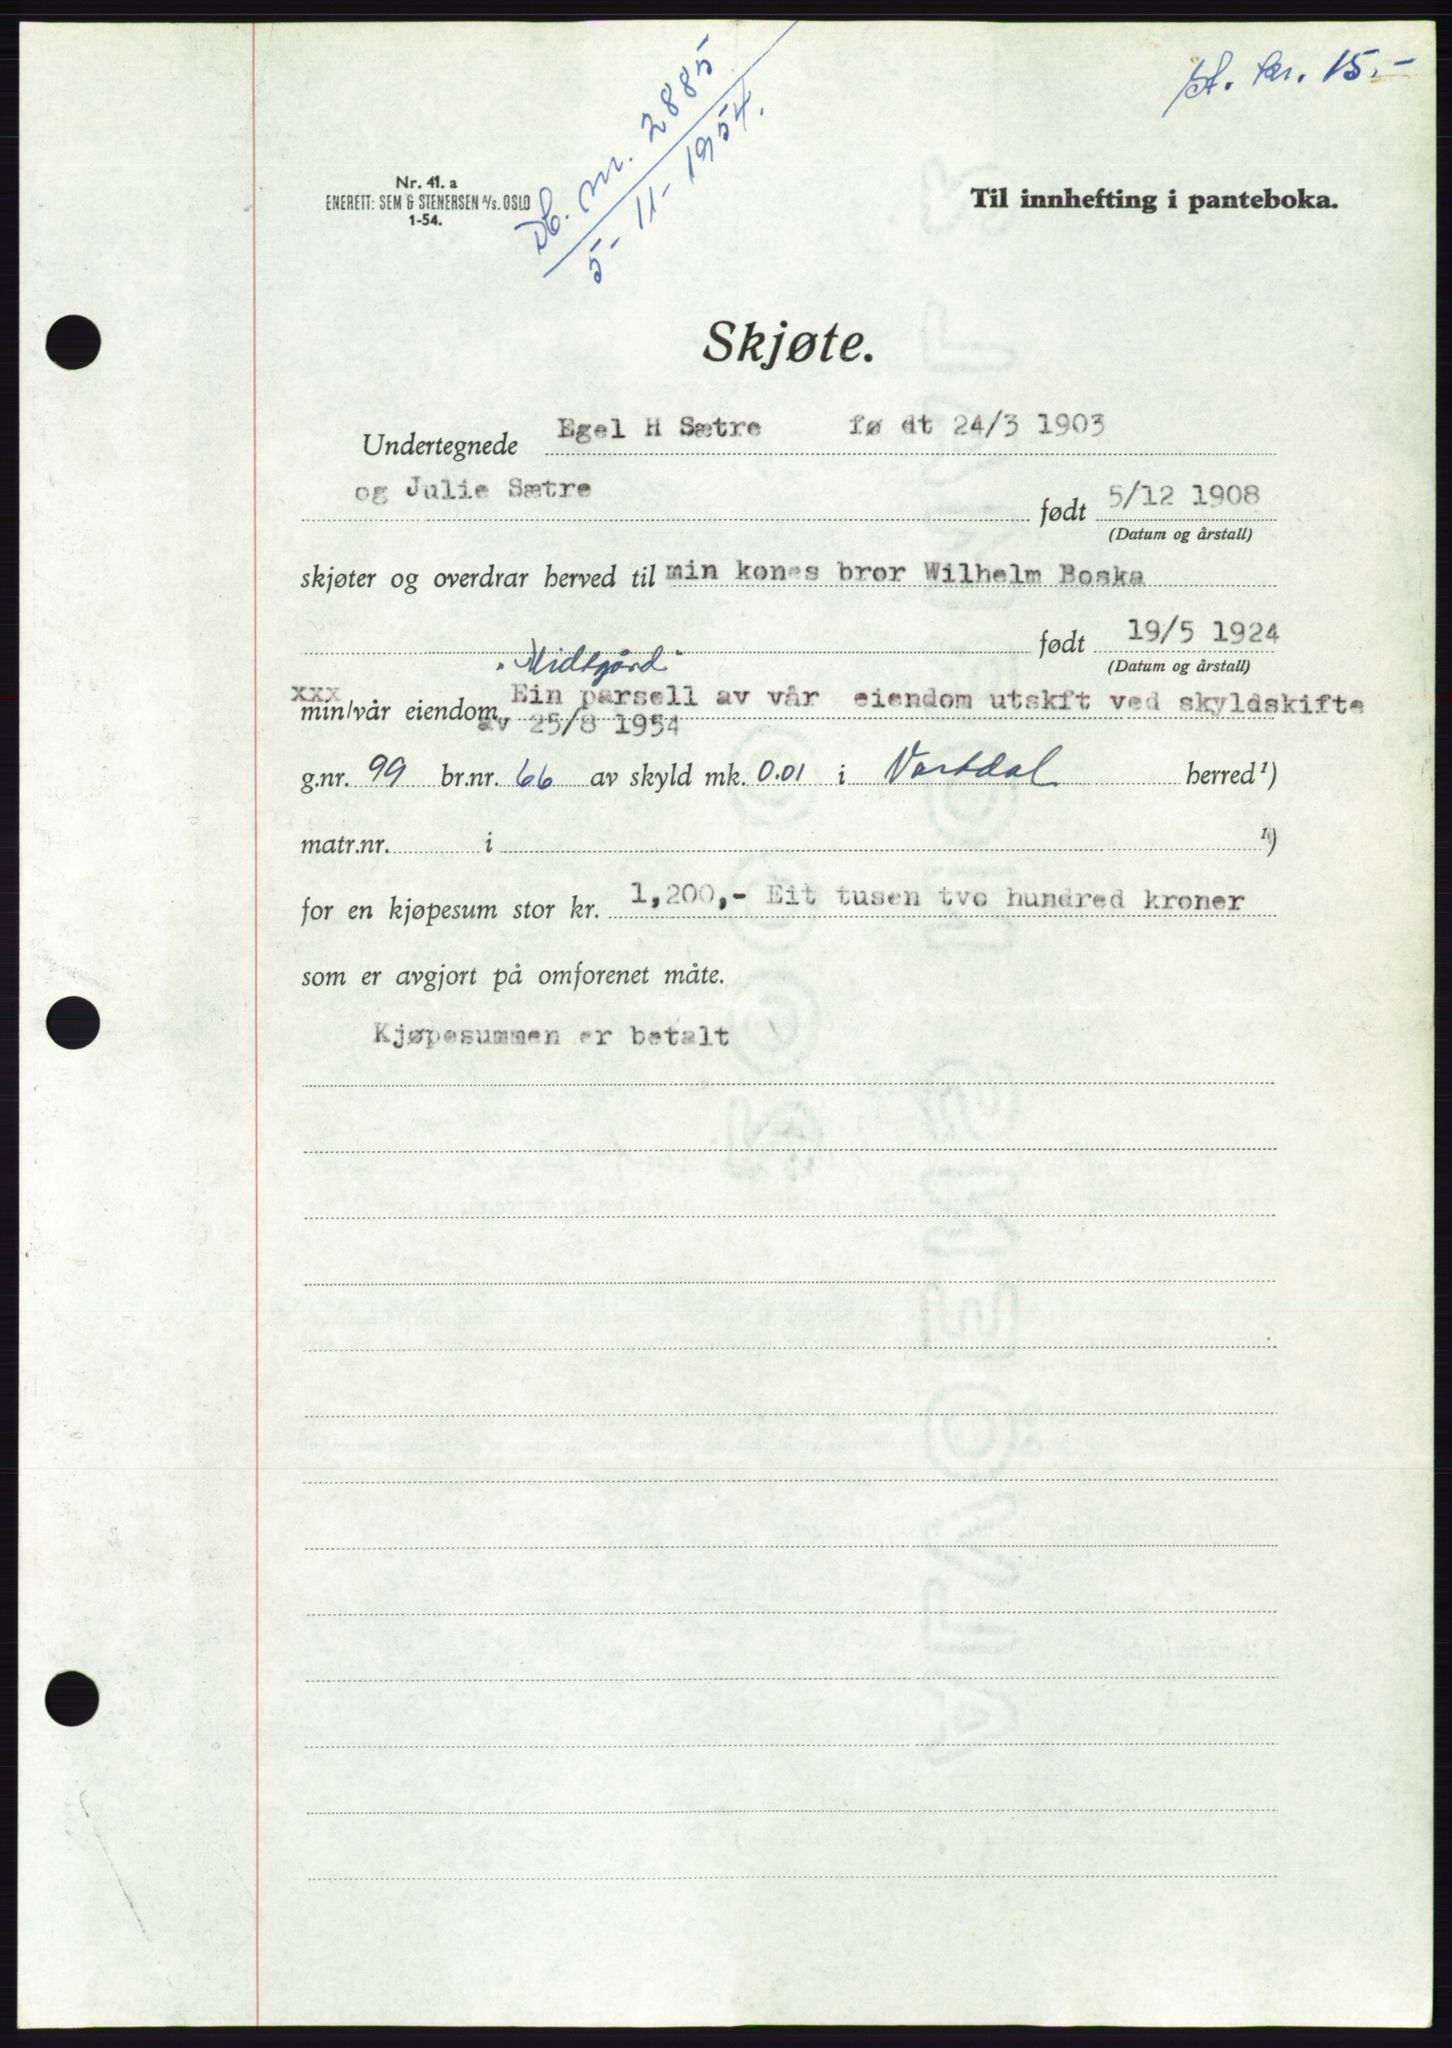 st. kr. 15.-
Db. nr. 2885
5-11-1954.
Nr. 41. a
ENERETT: SEM & STENERSEN A/S. OSLO
1-54.
Til innhefting i panteboka.
Skjøte.
Undertegnede Egel H Sætre fø dt 24/3 1903
og Julie Sætre født 5/12 1908
(Datum og årstall)
skjøter og overdrar herved til min kones bror Wilhelm Boska
født 19/5 1924
(Datum og årstall)
"Midtgård"
xxx
min/vår eiendom Ein parsell av vår eiendom utskft ved skyldskifte
av 25/8 1954
g.nr. 99 br.nr. 66 av skyld mk. 0.01 i Vartdal herred ¹)
matr.nr. i ¹)
for en kjøpesum stor kr. 1,200,- Eit tusen tvo hundred kroner
som er avgjort på omforenet måte.
Kjøpesummen er betalt